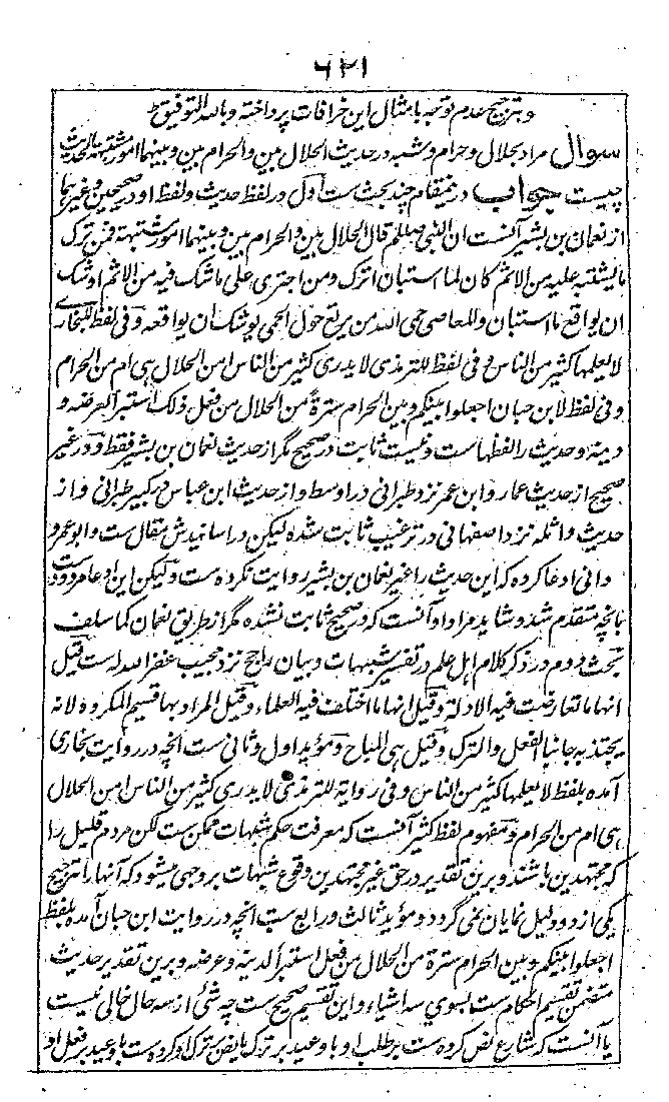 ٦٢١
و بترجیح عدم توجه بامثال این خرافات پرداخته و بالله التوفیق
سوال مراد بحلال و حرام و مشتبه در حدیث الحلال بین والحرام بین و بینهما امور مشتبهة الحدیث
چیست جواب درینمقام چند بحث ست اول در لفظ حدیث و لفظ او در صحیحین و غیرهما
از نعمان بن بشیر آنست ان النبی صللم قال الحلال بین والحرام بین و بینهما امور مشتبهة فمن ترک
ما یشتبه علیه من الاثم کان لما استبان اترک ومن اجتری علی ما یشک فیه من الاثم اوشک
ان یواقع ما استبان والمعاصی حمی الله من یرتع حول الحمی یوشک ان یواقعه و فی لفظ للبخاری
لا یعلمها کثیر من الناس و فی لفظ للترمذی لا یدری کثیر من الناس امن الحلال هی ام من الحرام
و فی لفظ لابن حبان اجعلوا بینکم و بین الحرام سترة من الحلال من فعل ذلک استبرأ لعرضه و
دینه و حدیث را لفظهاست و نیست ثابت در صحیح مگر از حدیث نعمان بن بشیر فقط و در غیر
صحیح از حدیث عمار و ابن عمر نزد طبرانی در اوسط و از حدیث ابن عباس در کبیر طبرانی و از
حدیث واثله نزد اصفهانی در ترغیب ثابت شده لیکن در اسانیدش مقال ست و ابو عمرو
دانی ادعا کرده که این حدیث را غیر نعمان بن بشیر روایت نکرده ست و لیکن این ادعا مردودست
بانچه متقدم شد و شاید مراد او آنست که در صحیح ثابت نشده مگر از طریق نعمان کما سلف
بحث دوم در ذکر کلام اهل علم در تفسیر شبهات و بیان راجح نزد مجیب غفر الله له است قیل
انها ما تعارضت فیه الادلة و قیل انها ما اختلف فیه العلماء و قیل المراد بها قسیم المکروه لانه
یجتذبه جانبا الفعل والترک و قیل هی المباح و مؤید اول و ثانی ست انچه در روایت بخاری
آمده بلفظ لا یعلمها کثیر من الناس و فی روایة للترمذی لا یدری کثیر من الناس امن الحلال
هی ام من الحرام و مفهوم لفظ کثیر آنست که معرفت حکم شبهات ممکن ست لکن مردم قلیل را
که مجتهدین باشند و برین تقدیر در حق غیر مجتهدین وقوع شبهات بر وجهی میشود که آنها را ترجیح
یکی از دو دلیل نمایان نمی گردد و مؤید ثالث و رابع ست انچه در روایت ابن حبان آمده بلفظ
اجعلوا بینکم و بین الحرام سترة من الحلال من فعل استبرأ لدینه و عرضه و برین تقدیر حدیث
متضمن تقسیم احکام ست بسوی سه اشیاء و این تقسیم صحیح ست چه شئ از سه حال خالی نیست
یا آنست که شارع نص کرده ست بر طلب او با وعید بر ترک یا نص بر ترک او کرده ست با وعید بر فعل او